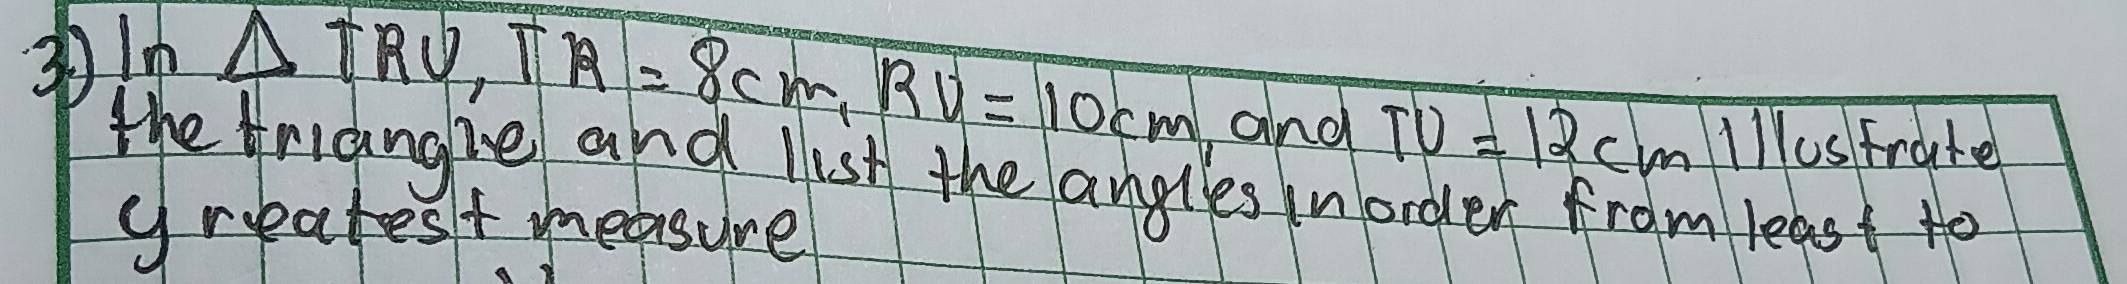 3) In △ TRU, TR = 8cm, RU = 10cm, and TU = 12cm Illustrate
the triangle and list the angles in order from least to
greatest measure